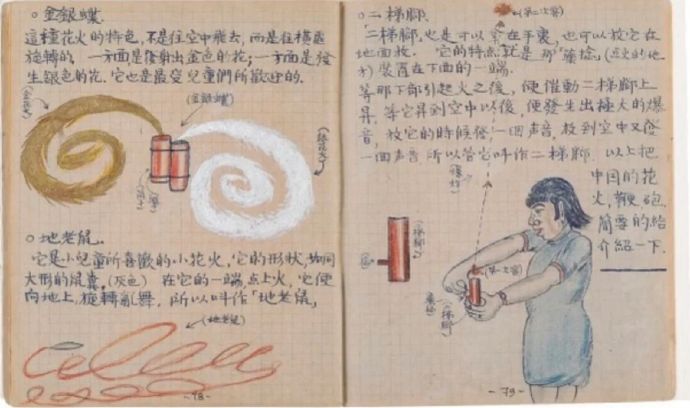 ○金銀蝶.
這種花火的特色,不是往空中飛去,而是往橫處
旋轉的,一方面是發射出金色的花;一方面是發
生銀色的花.它也是最受兒童們所歡迎的.
(金銀蝶)
○地老鼠.
它是小兒童所喜歡的小花火,它的形狀,如同
大形的鼠糞,(灰色) 在它的一端点上火,它便
向地上,旋轉亂舞, 所以叫作「地老鼠」
(地老鼠)
-78-
○二梯腳.
(第二次響)
二梯腳,也是可以拿在手裏,也可以放它在
地面放. 它的特點就是那
裝置在下面的一端.
等那下部引起火之後,便催動二梯腳上
昇,等它昇到空中以後,便發生出極大的爆
音,放它的時候發一個声音,放到空中又發
一個声音所以管它叫作二梯腳. 以上把
中国的花
火,鞭砲,
簡要的給
介紹一下.
(二梯腳)
(第一次響)
-79-